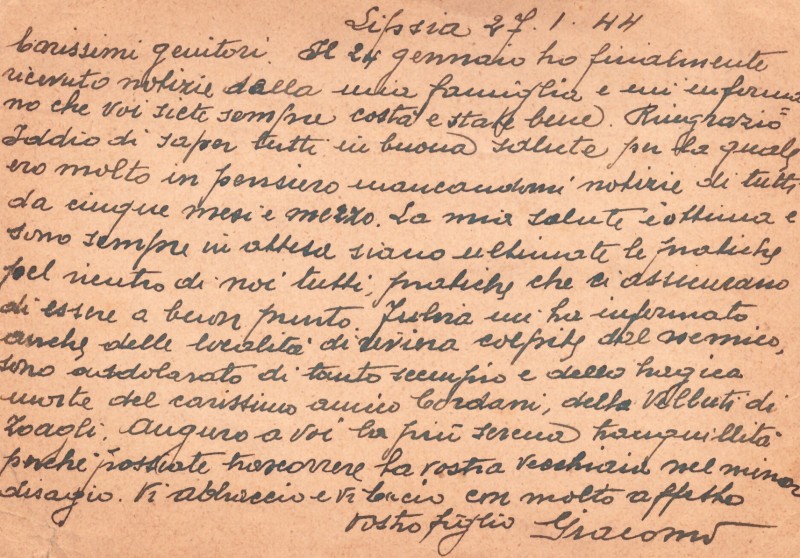 Lipsia 27.1.44
Carissimi genitori. Il 24 gennaio ho finalmente
ricevuto notizie della mia famiglia e mi informa
no che voi siete sempre costà e state bene. Ringrazio
Iddio di saper tutti in buona salute per la quale
ero molto in pensiero mancandomi notizie di tutti
da cinque mesi e mezzo. La mia salute è ottima e
sono sempre in attesa siano ultimate le pratiche
pel rientro di noi tutti, pratiche che ci assicurano
di essere a buon punto. Fulvia mi ha informato
anche delle località di riviera colpite dal nemico,
sono addolorato di tanto scempio e della tragica
morte del carissimo amico Cordani, della Velluti di
Zoagli. Auguro a voi la più serena tranquillità
perché possiate trascorrere la vostra vecchiaia nel minor
disagio. Vi abbraccio e vi bacio con molto affetto
vostro figlio Giacomo